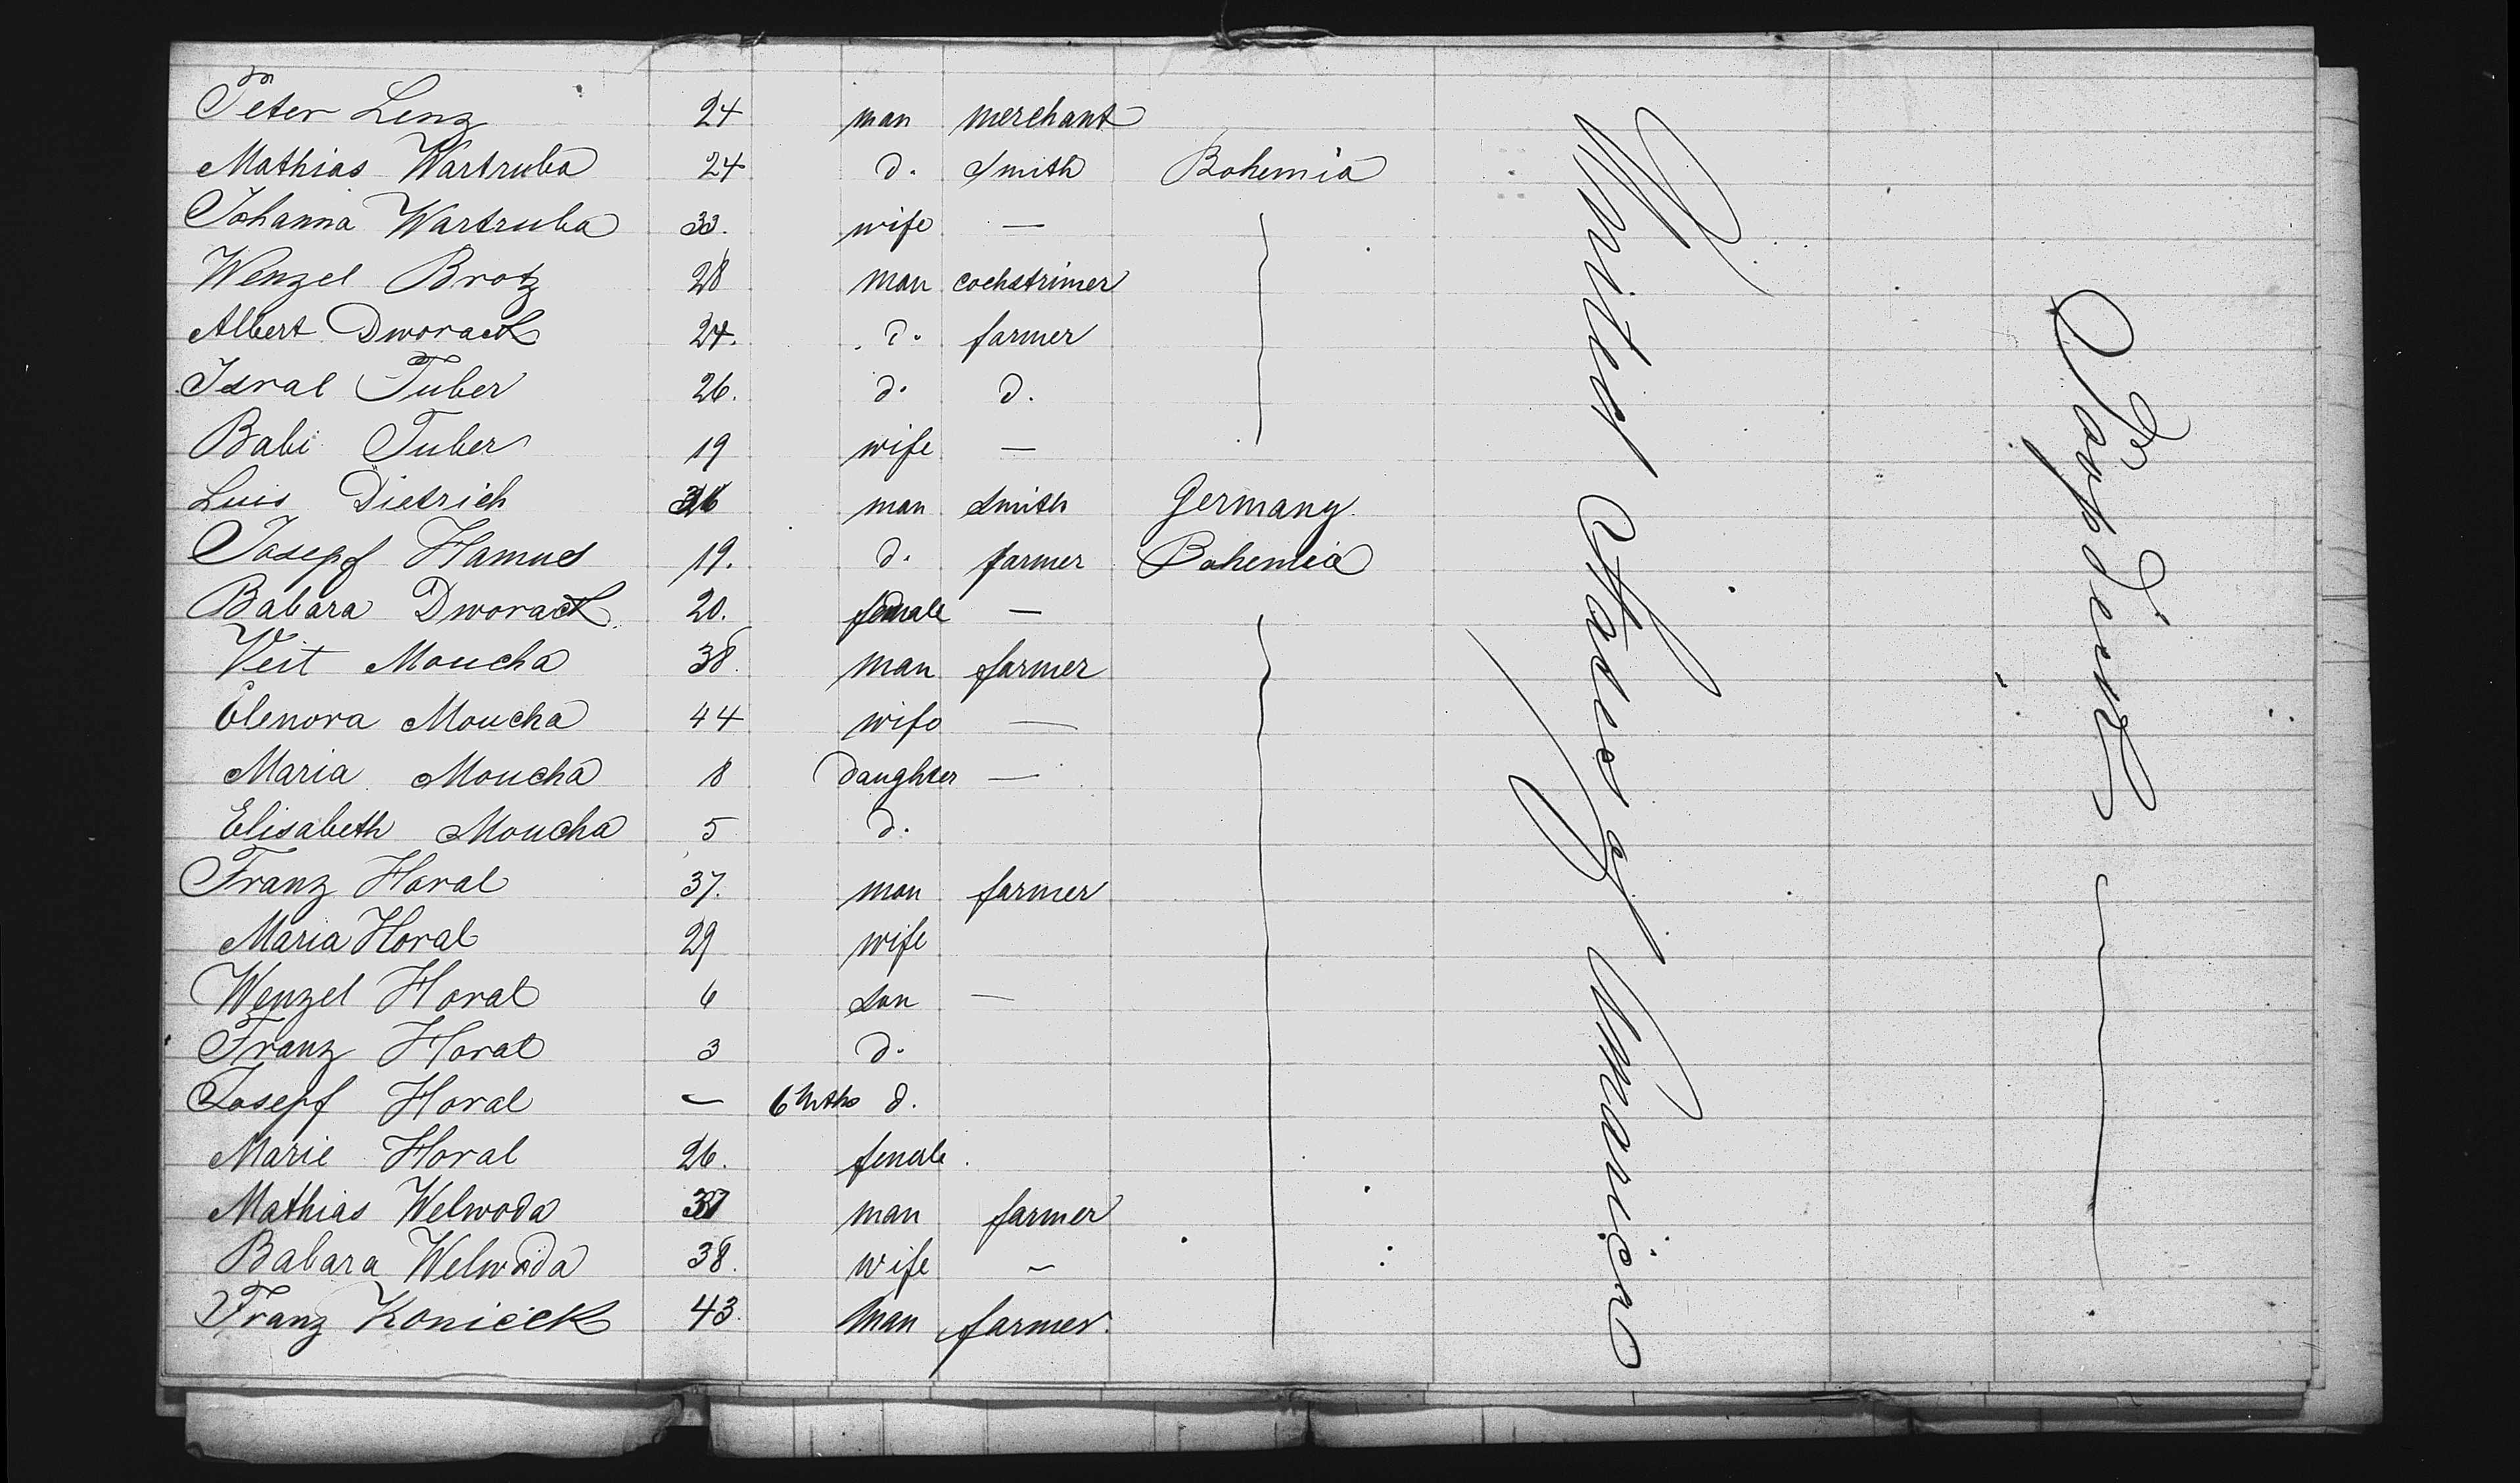 Peter Lenz 24 man merchant
Mathias Wartruba 24 d. Smith Bohemia
Johanna Wartruba 33. wife —
Wenzel Brotz 28 man cochstrimer
Albert Dworack 24. d. farmer
Isral Tuber 26. d. d.
Babi Tuber 19 wife —
Luis Dietrich 36 man Smith Germany
Josepf Hamus 19. d. farmer Bohemia
Babara Dworack 20. female —
Veit Moucha 38. man farmer
Elenora Moucha 44 wife —
Maria Moucha 8 Daughter —
Elisabeth Moucha 5 d.
Franz Horal 37. man farmer
Maria Horal 29 wife
Wenzel Horal 6 son —
Franz Horal 3 d.
Josepf Horal — 6 Mths d.
Marie Horal 26. female.
Mathias Welwoda 37 man farmer
Babara Welwoda 38. wife —
Franz Konicek 43. man farmer.
United States of America